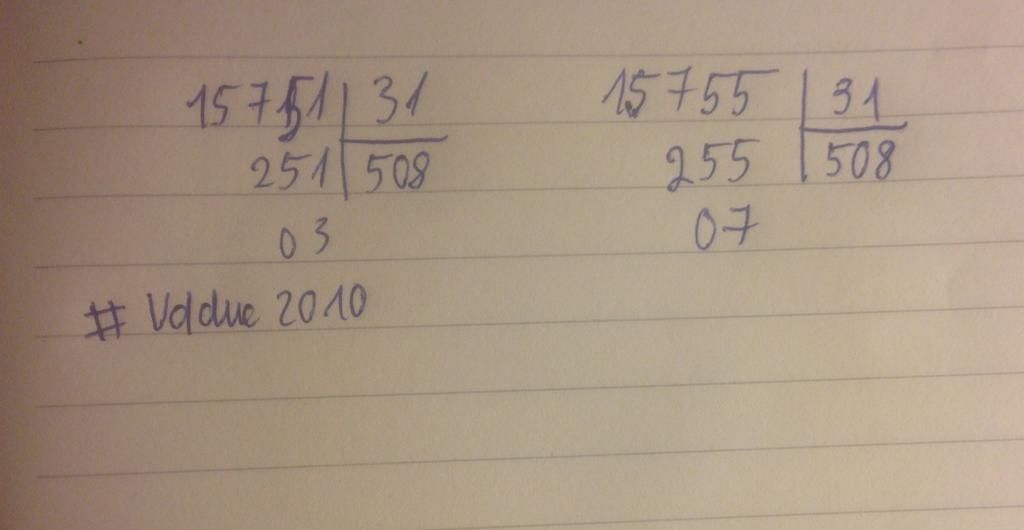 15751 31 15755 31
251 508 255 508
03 07
# Vdduc 2010